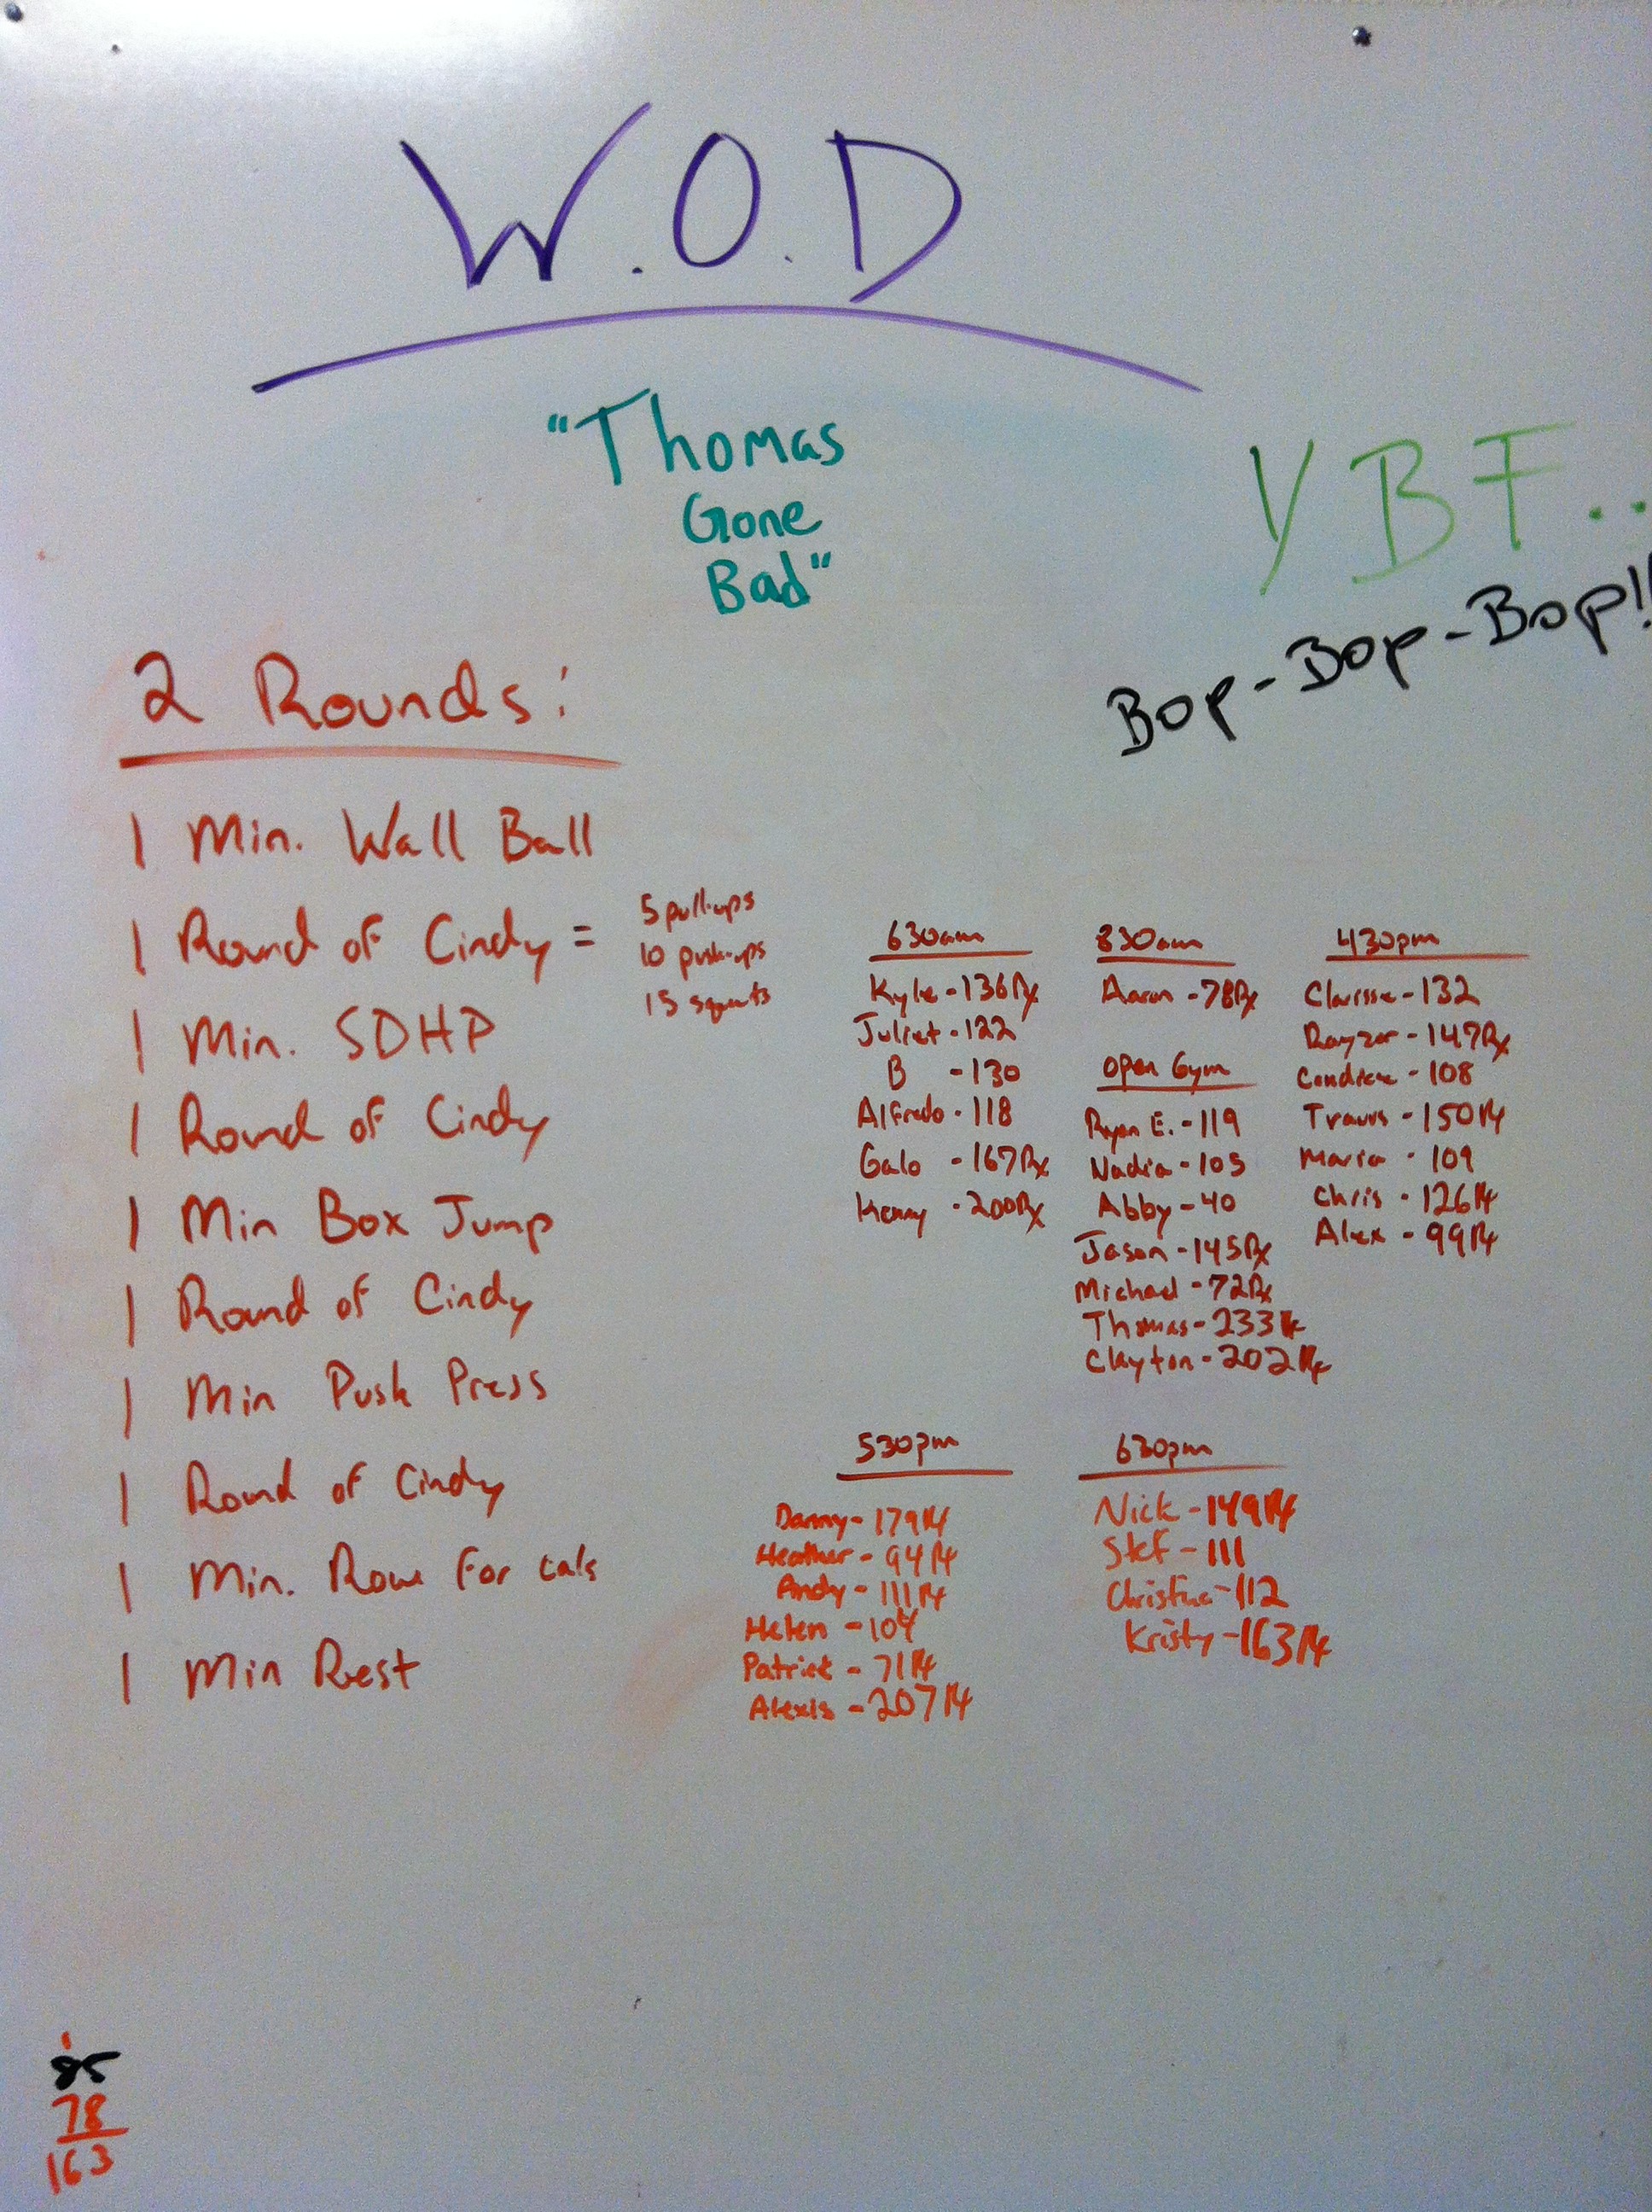 W.O.D
"Thomas
Gone
Bad"
YBF..
Bop-Bop-Bop!!
2 Rounds:
1 Min. Wall Ball
1 Round of Cindy = 5 pull-ups
10 push-ups
15 squats
1 Min. SDHP
1 Round of Cindy
1 Min Box Jump
1 Round of Cindy
1 Min Push Press
1 Round of Cindy
1 Min. Row For cals
1 Min Rest
630am
Kyle - 136 Rx
Juliet - 122
B - 130
Alfredo - 118
Galo - 167 Rx
Kenny - 200 Rx
830am
Aaron - 78 Rx
Open Gym
Ryan E. - 119
Nadia - 105
Abby - 40
Jason - 145 Rx
Michael - 72 Rx
Thomas - 233 Rx
Clayton - 202 Rx
430pm
Clarisse - 132
Rayzor - 147 Rx
Candice - 108
Travis - 150 Rx
Maria - 109
Chris - 126 Rx
Alex - 99 Rx
530pm
Danny - 179 Rx
Heather - 94 Rx
Andy - 111 Rx
Helen - 104
Patrick - 71 Rx
Alexis - 207 Rx
630pm
Nick - 149 Rx
Stef - 111
Christina - 112
Kristy - 163 Rx
1
85
78
163